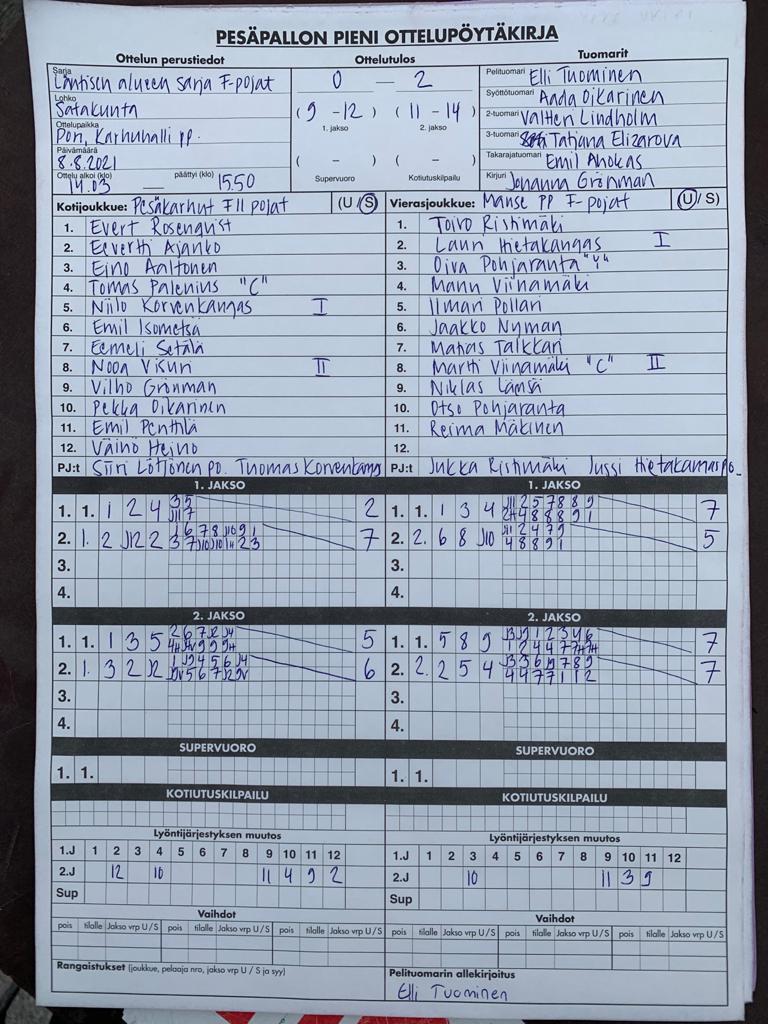 PESÄPALLON PIENI OTTELUPÖYTÄKIRJA
Ottelun perustiedot
Sarja
Läntisen alueen sarja F-pojat
Lohko
Satakunta
Ottelupaikka
Pori, Karhuhalli pp.
Päivämäärä
8.8.2021
Ottelu alkoi (klo) päättyi (klo)
14.03 — 15.50
Ottelutulos
0 — 2
(9 - 12) (11 - 14)
1. jakso 2. jakso
( - ) ( - )
Supervuoro Kotiutuskilpailu
Tuomarit
Pelituomari Elli Tuominen
Syöttötuomari Aada Oikarinen
2-tuomari Valtteri Lindholm
3-tuomari Tatjana Elizarova
Takarajatuomari Emil Ahokas
Kirjuri Johanna Grönman
Kotijoukkue: Pesäkarhut FII pojat (U/S)
1. Evert Rosenqvist
2. Eevertti Ajanko
3. Eino Aaltonen
4. Tomas Palenius "C"
5. Niilo Korvenkangas I
6. Emil Isometsä
7. Eemeli Setälä
8. Nooa Visuri II
9. Vilho Grönman
10. Pekka Oikarinen
11. Emil Penttilä
12. Väinö Heino
PJ:t Siiri Lötjönen po. Tuomas Korvenkangas
Vierasjoukkue: Manse PP F-pojat (U/S)
1. Toivo Ristimäki
2. Lauri Hietakangas I
3. Oiva Pohjaranta
4. Manu Viinamäki
5. Ilmari Pollari
6. Jaakko Nyman
7. Matias Talkkari
8. Martti Viinamäki "C" II
9. Niklas Länsä
10. Otso Pohjaranta
11. Reima Mäkinen
12.
PJ:t Jukka Ristimäki Jussi Hietakangas po.
1. JAKSO
1. 1. 1 2 4 2
2. 1. 2 J12 2 7
3.
4.
1. JAKSO
1. 1. 1 3 4 7
2. 2. 6 8 J10 5
3.
4.
2. JAKSO
1. 1. 1 3 5 5
2. 1. 3 2 J2 6
3.
4.
2. JAKSO
1. 1. 5 8 9 7
2. 2. 2 5 4 7
3.
4.
SUPERVUORO
1. 1.
SUPERVUORO
1. 1.
KOTIUTUSKILPAILU
KOTIUTUSKILPAILU
Lyöntijärjestyksen muutos
1.J 1 2 3 4 5 6 7 8 9 10 11 12
2.J 12 10 11 4 9 2
Sup
Lyöntijärjestyksen muutos
1.J 1 2 3 4 5 6 7 8 9 10 11 12
2.J 10 11 3 9
Sup
Vaihdot
pois tilalle Jakso vrp U/S pois tilalle Jakso vrp U/S pois tilalle Jakso vrp U/S
Vaihdot
pois tilalle Jakso vrp U/S pois tilalle Jakso vrp U/S pois tilalle Jakso vrp U/S
Rangaistukset (joukkue, pelaaja nro, jakso vrp U / S ja syy)
Pelituomarin allekirjoitus
Elli Tuominen